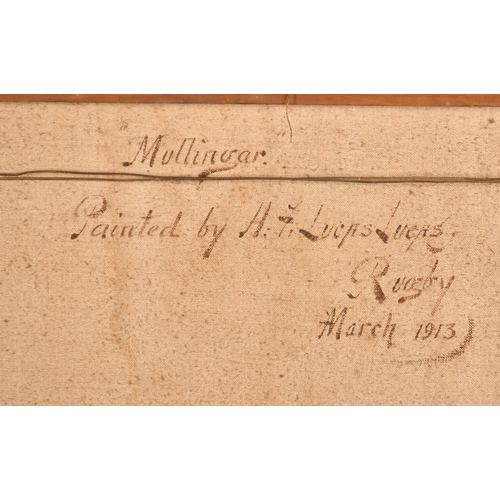 "Mullingar"
Painted by H. F. Lucas Lucas.
Rugby
March 1913